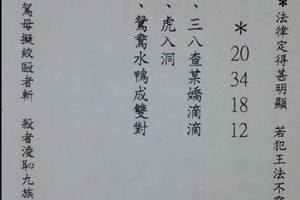 *法律定得甚明顯 若犯王法不容
*
20
34
18
12
、三八查某嬌滴滴
、虎入洞
、鴛鴦水鴨成雙對
罵母擬絞毆者斬 殺者凌恥九族